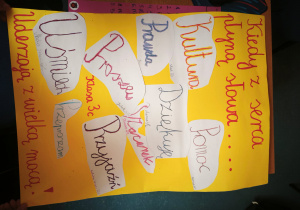 Kiedy z serca
płyną słowa....
Kultura
Prawda
Uśmiech
Proszę
Dziękuję
Pomoc
Szacunek
Klasa 3c
Przepraszam
Przyjaźń
Uderzają z wielką mocą.